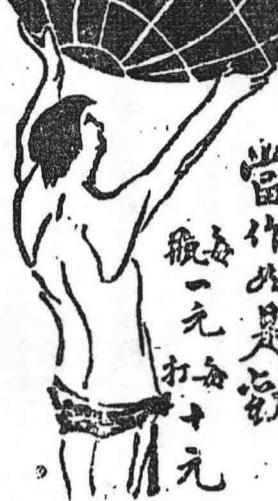 當作如是觀
每瓶一元每打十元